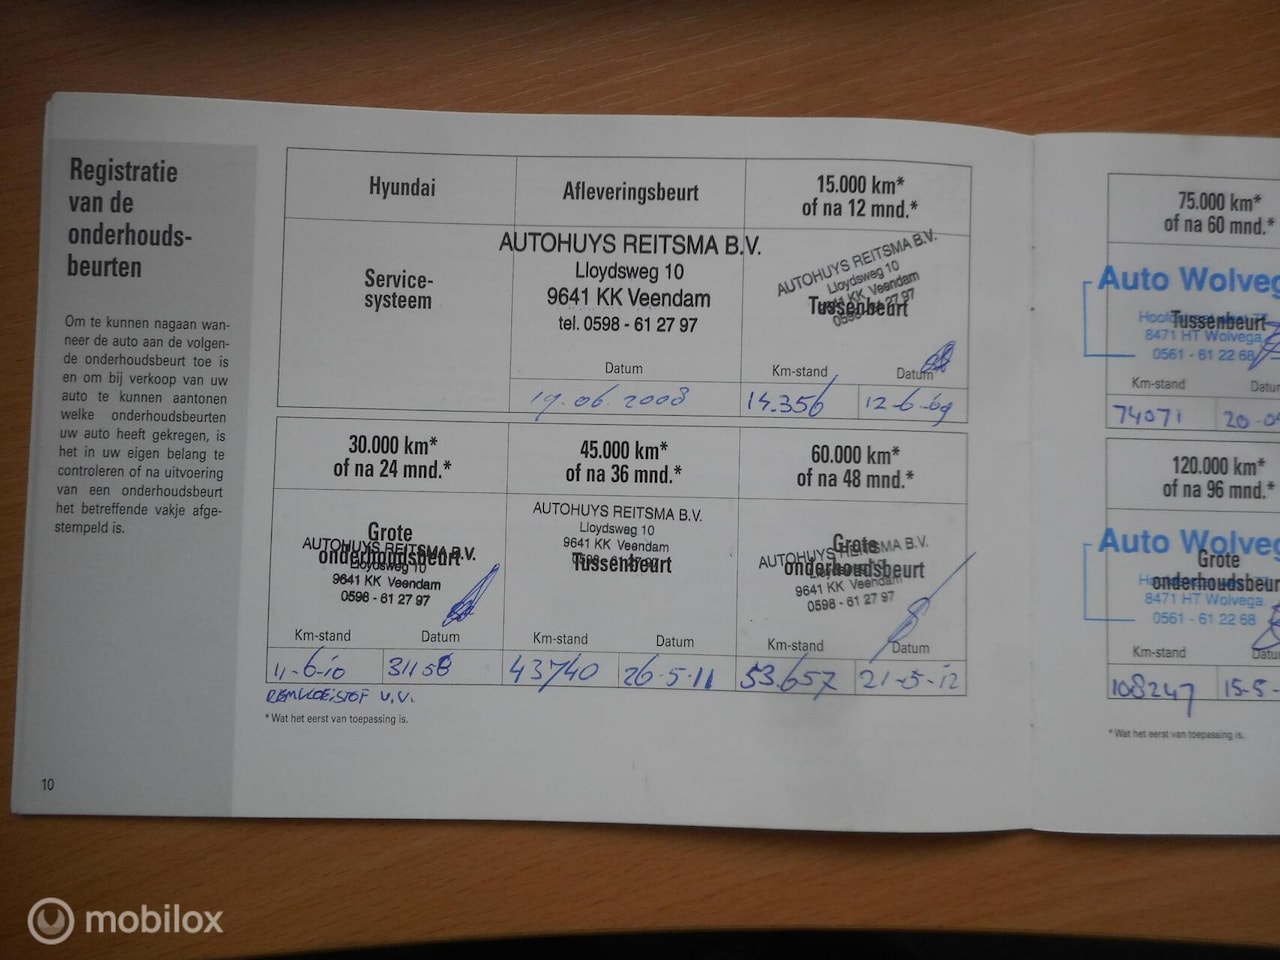 Registratie
van de
onderhouds-
beurten
Om te kunnen nagaan wan-
neer de auto aan de volgen-
de onderhoudsbeurt toe is
en om bij verkoop van uw
auto te kunnen aantonen
welke onderhoudsbeurten
uw auto heeft gekregen, is
het in uw eigen belang te
controleren of na uitvoering
van een onderhoudsbeurt
het betreffende vakje afge-
stempeld is.
10
Hyundai
Service-
systeem
Afleveringsbeurt
AUTOHUYS REITSMA B.V.
Lloydsweg 10
9641 KK Veendam
tel. 0598 - 61 27 97
Datum
19.06.2008
15.000 km*
of na 12 mnd.*
AUTOHUYS REITSMA B.V.
Lloydsweg 10
9641 KK Veendam
0598 - 61 27 97
Tussenbeurt
Km-stand Datum
14.356 12-6-09
30.000 km*
of na 24 mnd.*
Grote
onderhoudsbeurt
AUTOHUYS REITSMA B.V.
Lloydsweg 10
9641 KK Veendam
0598 - 61 27 97
Km-stand Datum
11-6-10 31158
REMVLOEISTOF V.V.
45.000 km*
of na 36 mnd.*
AUTOHUYS REITSMA B.V.
Lloydsweg 10
9641 KK Veendam
0598 - 61 27 97
Tussenbeurt
Km-stand Datum
43740 26-5-11
60.000 km*
of na 48 mnd.*
Grote
onderhoudsbeurt
AUTOHUYS REITSMA B.V.
Lloydsweg 10
9641 KK Veendam
0598 - 61 27 97
Km-stand Datum
53.657 21-5-12
* Wat het eerst van toepassing is.
75.000 km*
of na 60 mnd.*
Auto Wolveg
Tussenbeurt
8471 HT Wolvega
0561 - 61 22 68
Km-stand Datu
74071 20-0
120.000 km*
of na 96 mnd.*
Auto Wolveg
Grote
onderhoudsbeur
8471 HT Wolvega
0561 - 61 22 68
Km-stand Datu
108247 15-5-
* Wat het eerst van toepassing is.
mobilox